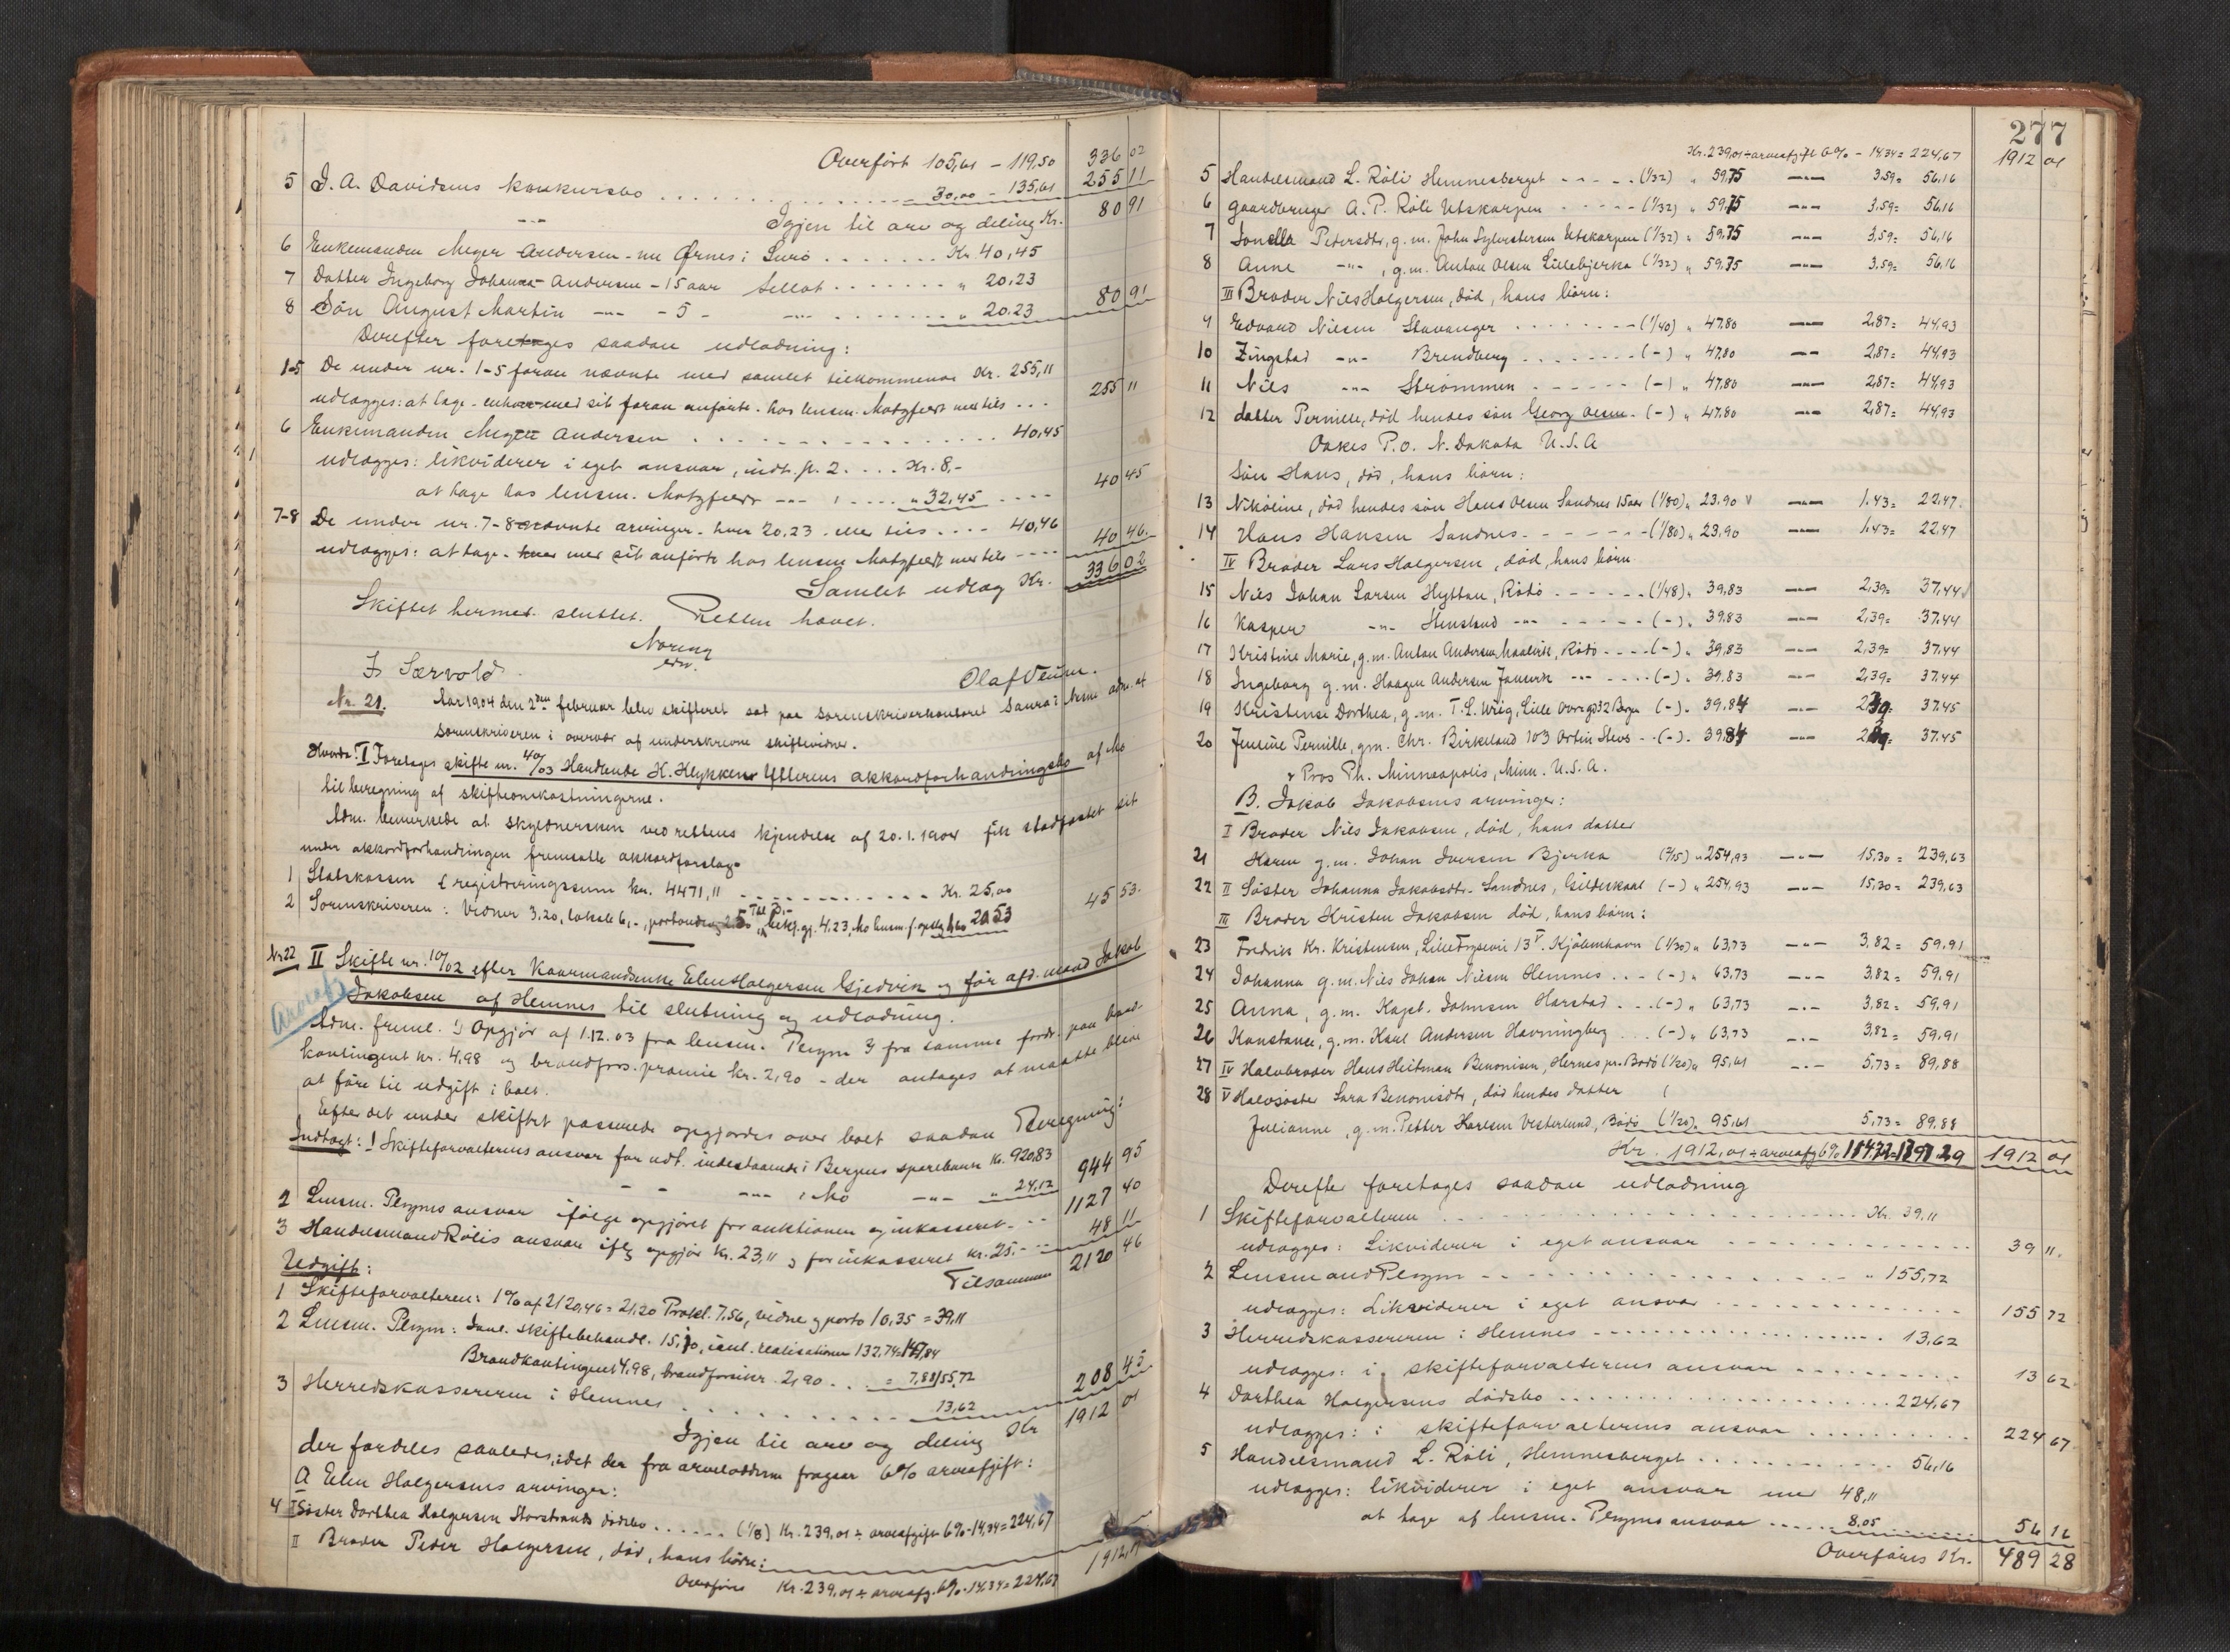 Overført 105,61 - 119,50 336 02
5 J. A. Davidsens konkursbo . . . 30,00 - 135,61 255 11
-"- Igjen til arv og deling Kr. 80 91
6 Enkemanden Meyer Andersen - nu Ørnes i Lurö . . . Kr. 40,45
7 Datter Ingeborg Johanna Andersen - 15 aar tillagt . . . " 20.23
8 Sön August Martin -"- - 5 - -"- . . . " 20.23 80 91
Derefter foretages saadan udlodning:
1-5 De under nr. 1-5 foran nævnte med samlet tilkommende Kr. 255,11
udlægges: at tage - enhver med sit foran anførte - hos lensm. Motzfeldt med tils . . . 255 11
6 Enkemanden Meyer Andersen . . . 40,45
udlægges: likviderer i eget ansvar, indt. p. 2 . . . Kr. 8,-
at tage hos lensm. Motzfeldt -"- 1 . . . " 32,45 . . . 40 45
7-8 De under nr. 7-8 nævnte arvinger - hver 20,23 - eller tils . . . 40,46
udlægges: at tage - hver med sit anførte hos lensm Motzfeldt med tils . . . 40 46
Samlet udlæg Kr. 336 02
Skiftet hermed sluttet. Retten hævet.
Noreng
edv.
J. Særvold. Olaf Veum.
Nr. 21. Aar 1904 den 2den februar blev skifteret sat paa sorenskriverkontoret Saura i Nesne adm. af
sorenskriveren i overvær af underskrevne skiftevidner.
Hvorda: I Foretages skifte nr. 40/03 Handlende K. Klykken Ytterens akkordforhandlingsbo af Mo
til beregning af skifteomkostningerne.
Adm. bemærkede at skyldnersken ved rettens kjendelse af 20.1.1904 fik stadfæstet sit
under akkordforhandlingen fremsatte akkordforslag.
1 Statskassen ( registreringssum kr. 4471,11 . . . Kr. 25,00
2 Sorenskriveren: Vidner 3.20, lokale 6,-, 45 53
Nr 22 II Skifte nr. 10/02 efter Kaarmandsenke Elen Holgersen Gjedvik og før afd. mand Jakob
Arveafg.
Jakobsen af Hemnes til slutning og udlodning.
Adm. freml. 1) Opgjör af 1.12.03 fra lensm. Plezym 2) fra samme fordr. paa brand-
kontingent kr. 4,98 og brandfors. præmie kr. 2,90 - der antages at maatte blive
at före til udgift i boet.
Efter det under skiftet passerede opgjordes over boet saadan Beregning:
Indtægt: 1 Skifteforvalterens ansvar for udt. indestaaende i Bergens sparebank Kr. 920,83
- - -"- i Mo -"- " 24,12 944 95
2 Lensm. Plezyms ansvar ifölge opgjöret for auktionen og inkasseret . . . 1127 40
3 Handelsmand Rölis ansvar iflg opgjör kr. 23,11 og for inkasseret kr. 25.- . . . 48 11
Tilsammen 2120 46
Udgift:
1 Skifteforvalteren: 1% af 2120,46 = 21,20 Protkl. 7,56, vidne og porto 10,35 = 39,11
2 Lensm. Plezym: Saml. skiftebehandl. 15,10, saml. realisationen 132,74 = 147,84
Brandkontingent 4.98, brandforsikr. 2,90 . . = 7,88 155,72
3 Herredskassereren i Hemnes . . . 13,62 208 45
Igjen til arv og deling Kr 1912 01
der fordeles saaledes, idet der fra arvelodderne fragaar 6% arveafgift:
A Elen Holgersens arvinger:
4 I Söster Dorthea Holgersen Storstrands dödsbo . . . (1/8) Kr. 239,01 ÷ arveafgift 6% - 14,34 = 224,67
II Broder Peder Holgersen, död, hans börn:
Overføres Kr. 239,01 ÷ arveafg. 6% - 14,34 = 224,67 1912,01
277
Kr. 239,01 ÷ arveafgift 6% - 14,34 = 224,67 1912 01
5 Handelsmand L. Röli Hemnesberget - - - (1/32) " 59,75 -"- 3,59 = 56,16
6 Gaardbruger A. P. Röli Utskarpen - - - (1/32) " 59,75 -"- 3,59 = 56,16
7 Jonella Pedersdtr, g.m. John Sylvestersen Utskarpen (1/32) " 59,75 -"- 3,59 = 56,16
8 Anne -"-, g.m. Anton Olsen Lillebjerka (1/32) " 59,75 -"- 3,59 = 56,16
III Broder Nils Holgersen, död, hans börn:
9 Edvard Nilsen Stavanger . . . (1/40) " 47,80 -"- 2,87 = 44,93
10 Zingstad -"- Brendberg . . . (-) " 47,80 -"- 2,87 = 44,93
11 Nils -"- Strömmen . . . (-) " 47,80 -"- 2,87 = 44,93
12 datter Pernille, död hendes sön Georg Olsen - (-) " 47,80 -"- 2,87 = 44,93
Oakes P.O. N. Dakota U.S.A
Sön Hans, död, hans börn:
13 Nikoline, död hendes sön Hans Olsen Sandnes 15 aar (1/80) " 23,90 -"- 1.43 = 22.47
14 Hans Hansen Sandnes - - - (1/80) " 23,90 -"- 1.43 = 22,47
IV Broder Lars Holgersen, död, hans börn
15 Nils Johan Larsen Hyttan, Rödö - - - (1/48) " 39,83 -"- 2,39 = 37,44
16 Kasper -"- Henslund -"- - - - (-) " 39,83 -"- 2,39 = 37,44
17 Kristine Marie, g.m. Anton Andersen, Rödö - - - (-) " 39,83 -"- 2,39 = 37,44
18 Ingeborg g.m. Haagen Andersen -"- . . . (-) " 39,83 -"- 2,39 = 37,44
19 Kristense Dorthea, g.m. T. L. Urig, Lille Øvregd 32 Bergen (-) " 39,84 -"- 2,39 = 37.45
20 Jensine Pernille, gm. Chr. Birkeland 103 - - (-) " 39,84 -"- 2,39 = 37.45
Minneapolis, Minn. U.S.A.
B. Jakob Jakobsens arvinger:
I Broder Nils Jakobsen, död, hans datter
21 Karen g.m. Johan Iversen Bjerka (2/15) " 254,93 -"- 15,30 = 239,63
22 II Söster Johanna Jakobsdtr. Sandnes, Gildeskaal (-) " 254,93 -"- 15,30 = 239,63
III Broder Kristen Jakobsen död, hans börn:
23 Fredrik Kr. Kristensen, 13 V. Kjöbenhavn (1/30) " 63,73 -"- 3,82 = 59,91
24 Johanna g.m. Nils Johan Nilsen Hemnes . . - (-) " 63,73 -"- 3,82 = 59,91
25 Anna, g.m. Kapt. Johnsen Harstad . . . (-) " 63,73 -"- 3,82 = 59,91
26 Konstance, g.m. Karl Andersen Havningberg . . . (-) " 63,73 -"- 3,82 = 59,91
27 IV Halvbroder Hans Heitman Benonisen, Hernes pr. Bodö (1/20) " 95,61 -"- 5,73 = 89,88
28 V Halvsöster Sara Benonisdtr, död hendes datter
Julianne, g.m. Petter Karlsen Vesterlund, Bodö (1/20) " 95,61 5,73 = 89,88
Kr. 1912,01 ÷ arveafg 6% 114,72 = 1797,29 1912 01
Derefter foretages saadan udlodning
1 Skifteforvalteren . . . Kr. 39,11
udlægges: Likviderer i eget ansvar . . . 39 11
2 Lensmand Plezym . . . " 155,72
udlægges: Likviderer i eget ansvar . . . 155 72
3 Herredskassereren i Hemnes . . . 13,62
udlægges: i skifteforvalterens ansvar . . . 13 62
4 Dorthea Holgersens dödsbo . . . 224,67
udlægges: i skifteforvalterens ansvar . . . 224 67
5 Handelsmand L. Röli, Hemnesberget . . . 56,16
udlægges: likviderer i eget ansvar med 48,11
at tage af lensm. Plezyms ansvar . . . 8,05 56 16
Overføres Kr. 489 28